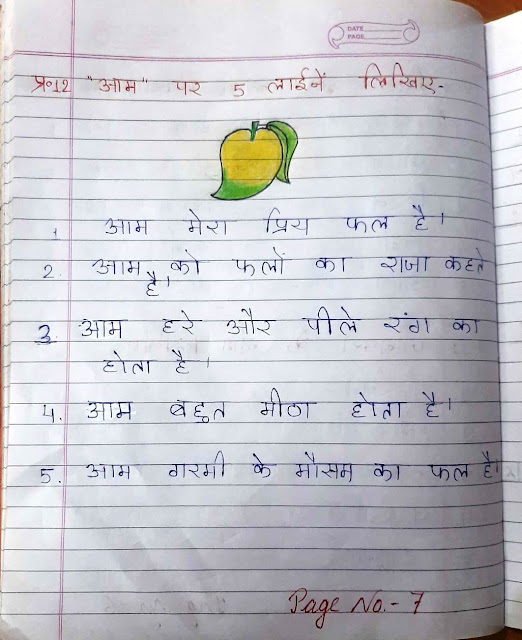 DATE
PAGE
प्र०12 "आम" पर 5 लाईनें लिखिए-
1 आम मेरा प्रिय फल है।
2. आम को फलों का राजा कहते
है।
3. आम हरे और पीले रंग का
होता है।
4. आम बहुत मीठा होता है।
5. आम गरमी के मौसम का फल है।
Page No.- 7